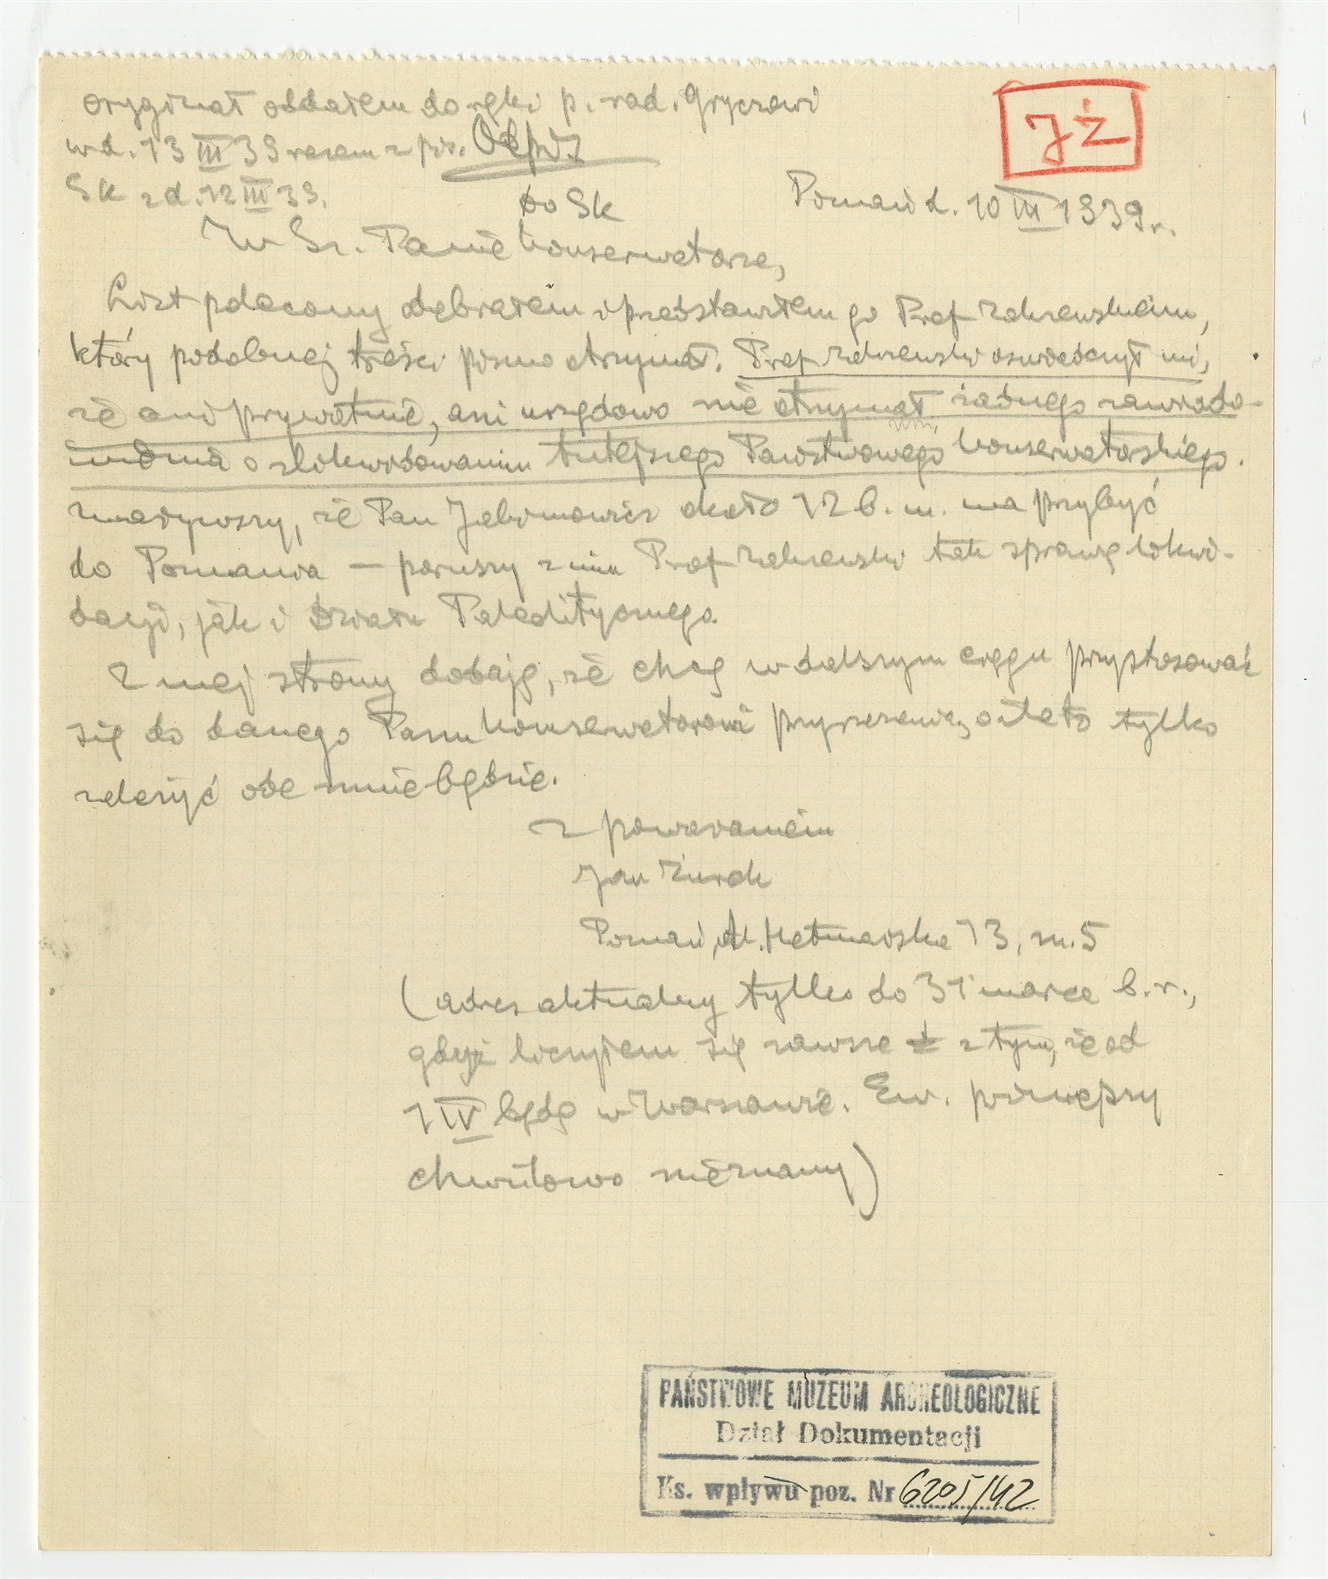 oryginał oddałem do ręki p. rad. Gryczowi
w d. 13 III 39 razem z pis. Odpis
SK z d. 12 III 39.
do SK
JŻ
Poznań d. 10 III 1939 r.
W Sz. Panie Konserwatorze,
List polecony odebrałem i przedstawiłem go Prof Zakrzewskiemu,
który podobnej treści pismo otrzymał. Prof Zakrzewski oświadczył mi,
że ani prywatnie, ani urzędowo nie otrzymał żadnego zawiado-
mienia o zlikwidowaniu tutejszego Państwowego Konserwatorskiego.
Zważywszy, że Pan Jakimowicz około 12 b. m. ma przybyć
do Poznania — poruszy z nim Prof Zakrzewski tak sprawę likwi-
dacji, jak i Działu Paleolitycznego.
Z mej strony dodaję, że chcę w dalszym ciągu przystosować
się do danego Panu Konserwatorowi przyrzeczenia, o ile to tylko
zależyć ode mnie będzie.
z poważaniem
Jan Żurek
Poznań, Al. Hetmańska 13, m. 5
(adres aktualny tylko do 31 marca b. r.,
gdyż liczyłem się zawsze z tym, że od
1 IV będę w Warszawie. Ew. późniejszy
chwilowo nieznany)
PAŃSTWOWE MUZEUM ARCHEOLOGICZNE
Dział Dokumentacji
Ks. wpływu poz. Nr 6205/42